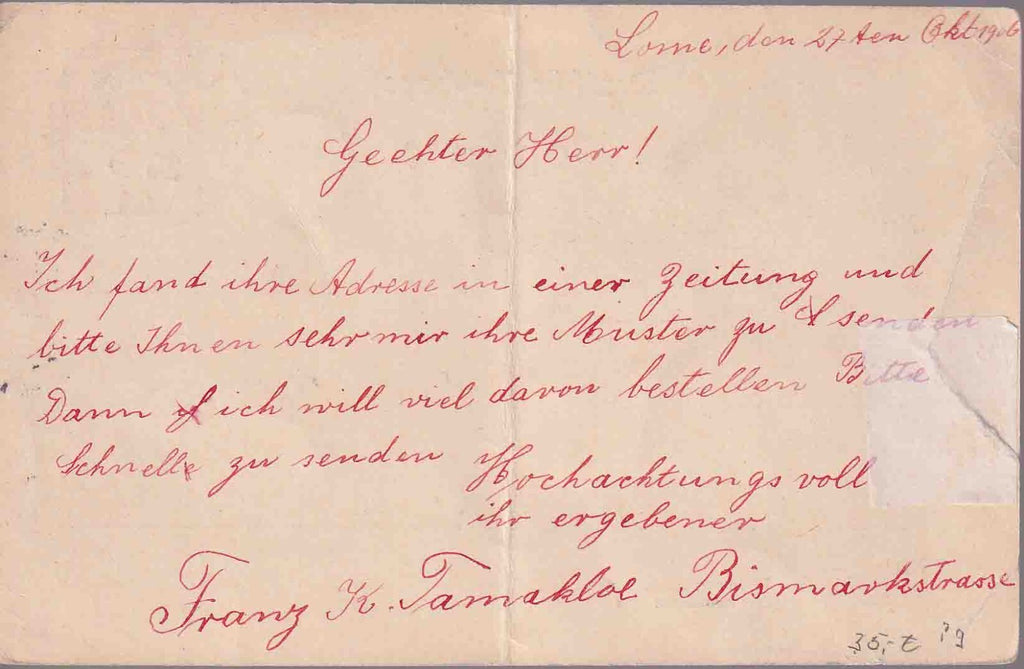 Lome, den 27ten Okt 1906
Geehter Herr!
Ich fand ihre Adresse in einer Zeitung und
bitte Ihnen sehr mir ihre Muster zu senden
Dann ich will viel davon bestellen Bitte
Schnelle zu senden Hochachtungsvoll
ihr ergebener
Franz K. Tamakloe Bismarkstrasse
35,-